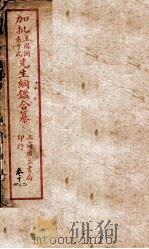 加批王鳳洲袁了凡先生綱鑑合纂
上海廣益書局
印行
卷十